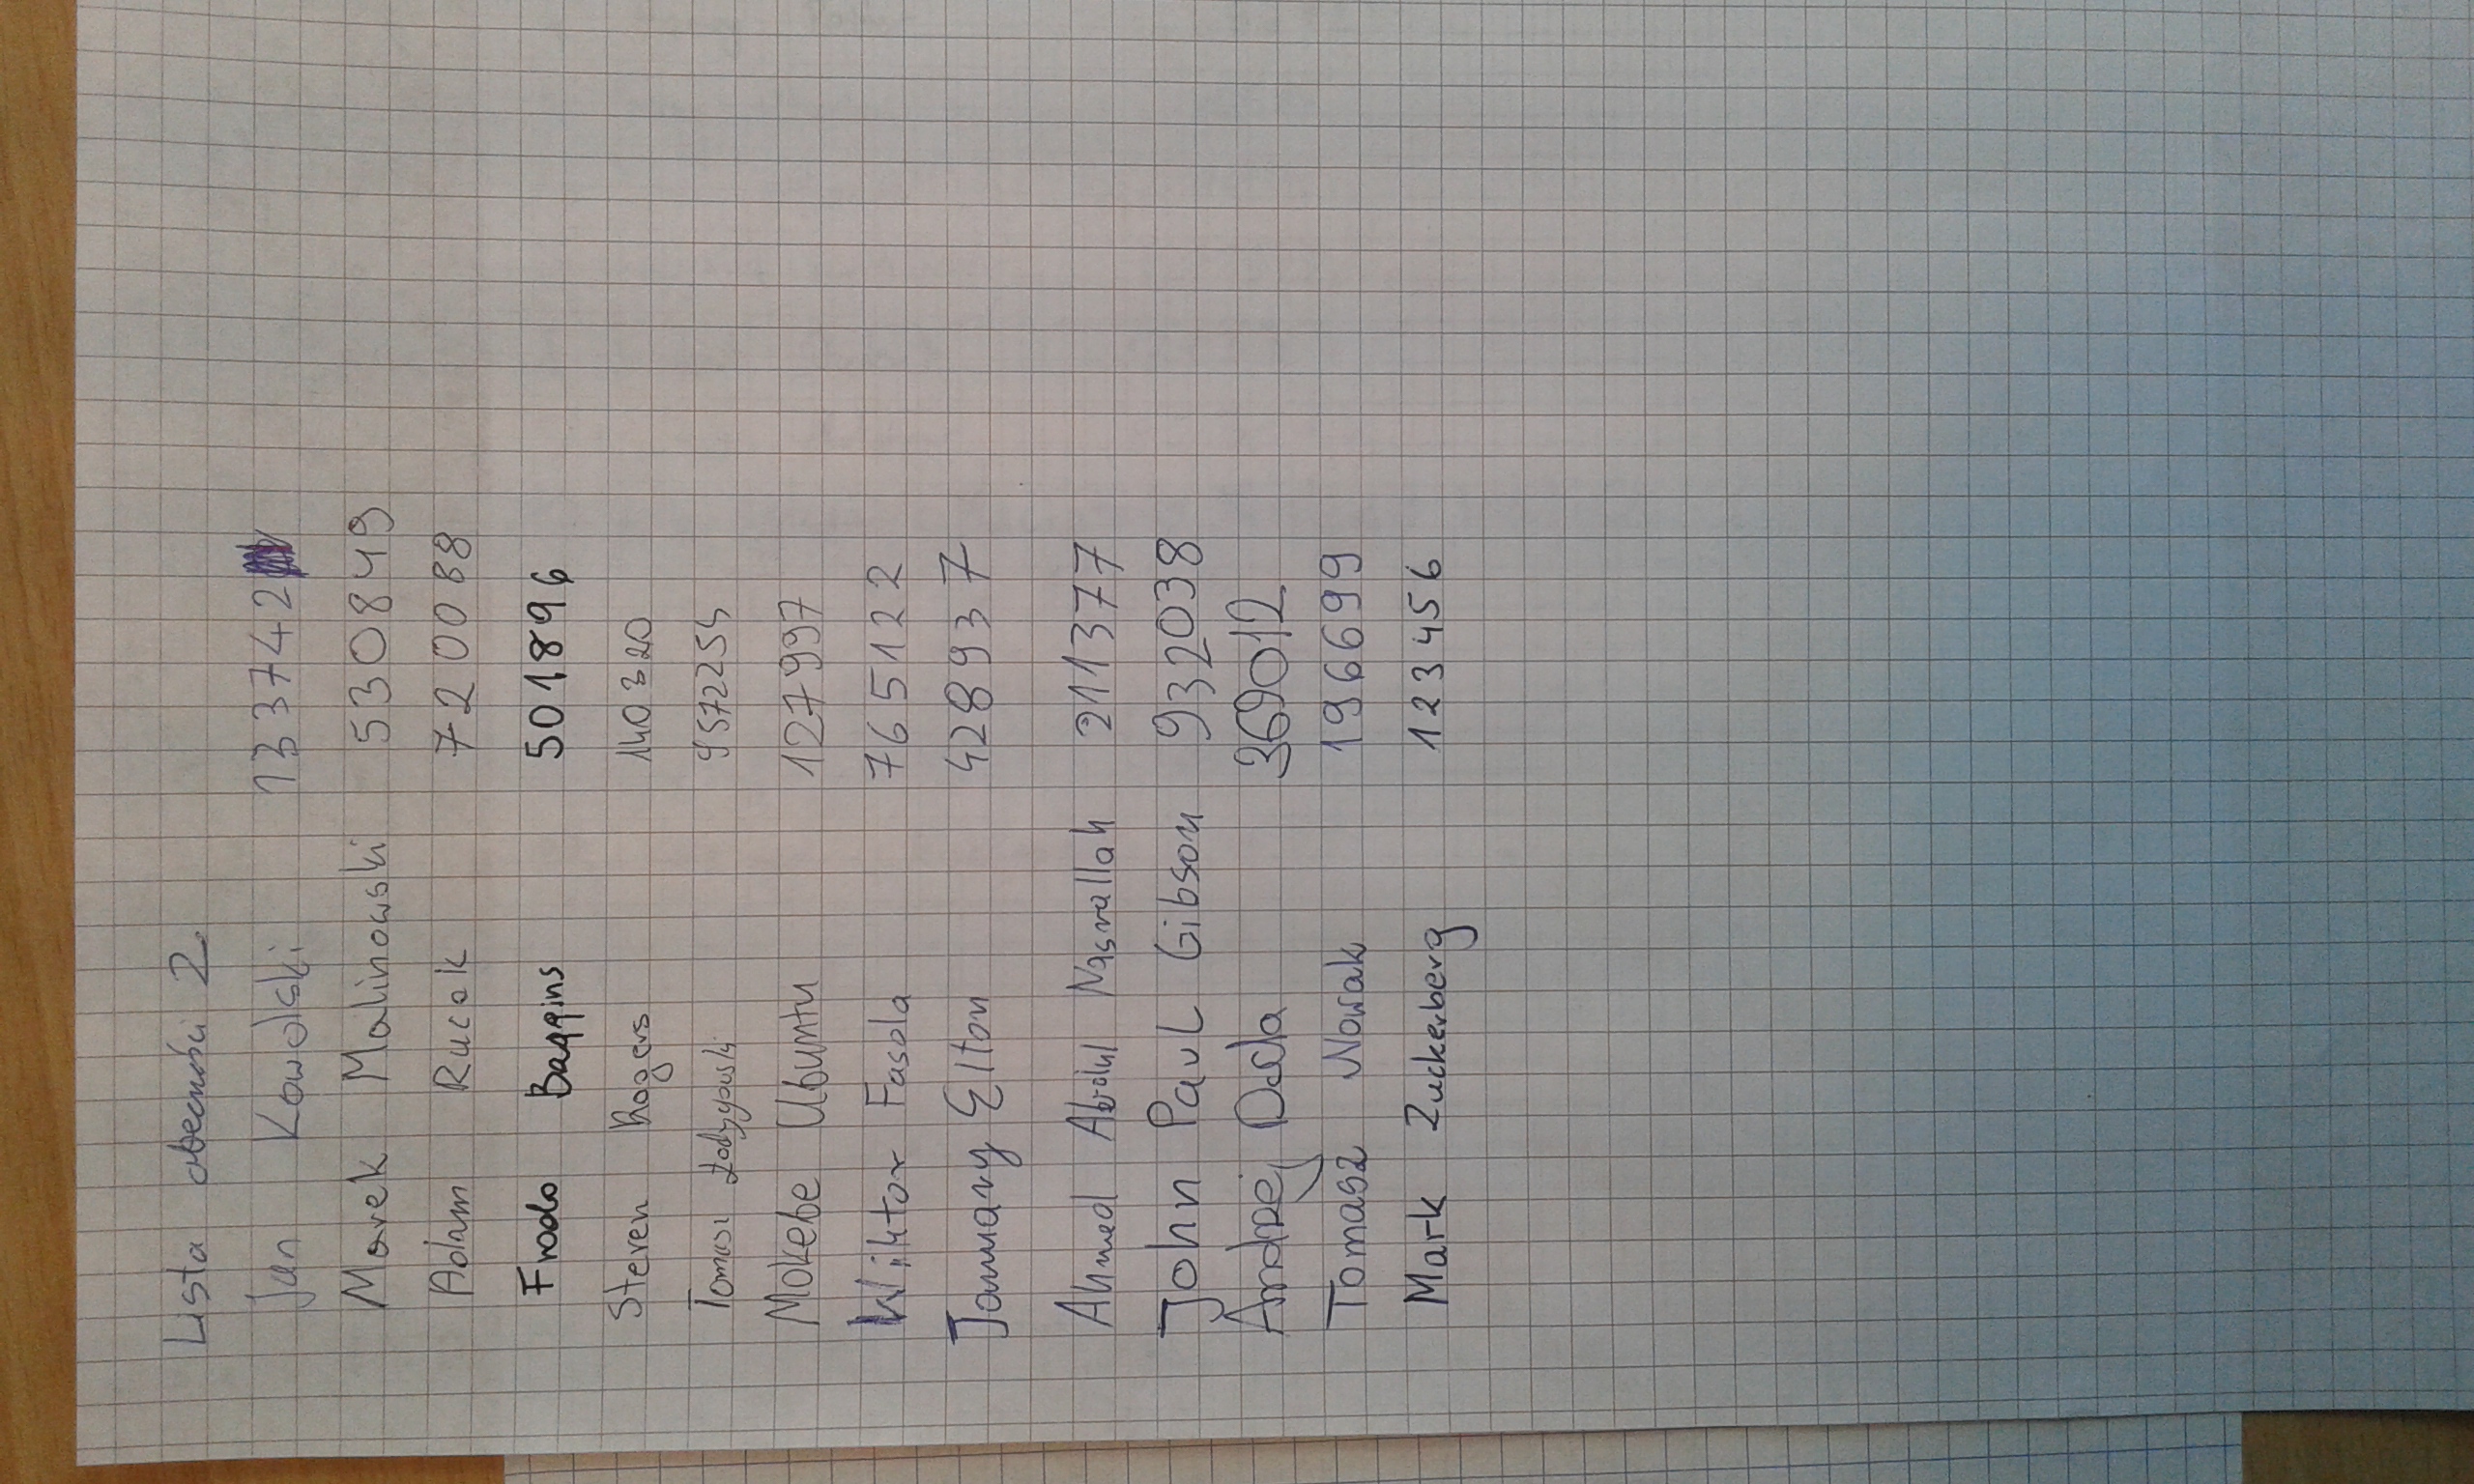 Lista obecności 2.
Jan Kowalski 133742
Marek Malinowski 530849
Adam Rucak 720088
Frodo Baggins 501896
Steven Rogers 140320
Tomasz 9572254
Mokebe Ubuntu 127997
Wiktor Fasola 765122
January Elton 428937
Ahmed Abdul Nasrallah 211377
John Paul Gibson 932038
Andrzej Duda 369012
Tomasz Nowak 196699
Mark Zuckerberg 123456